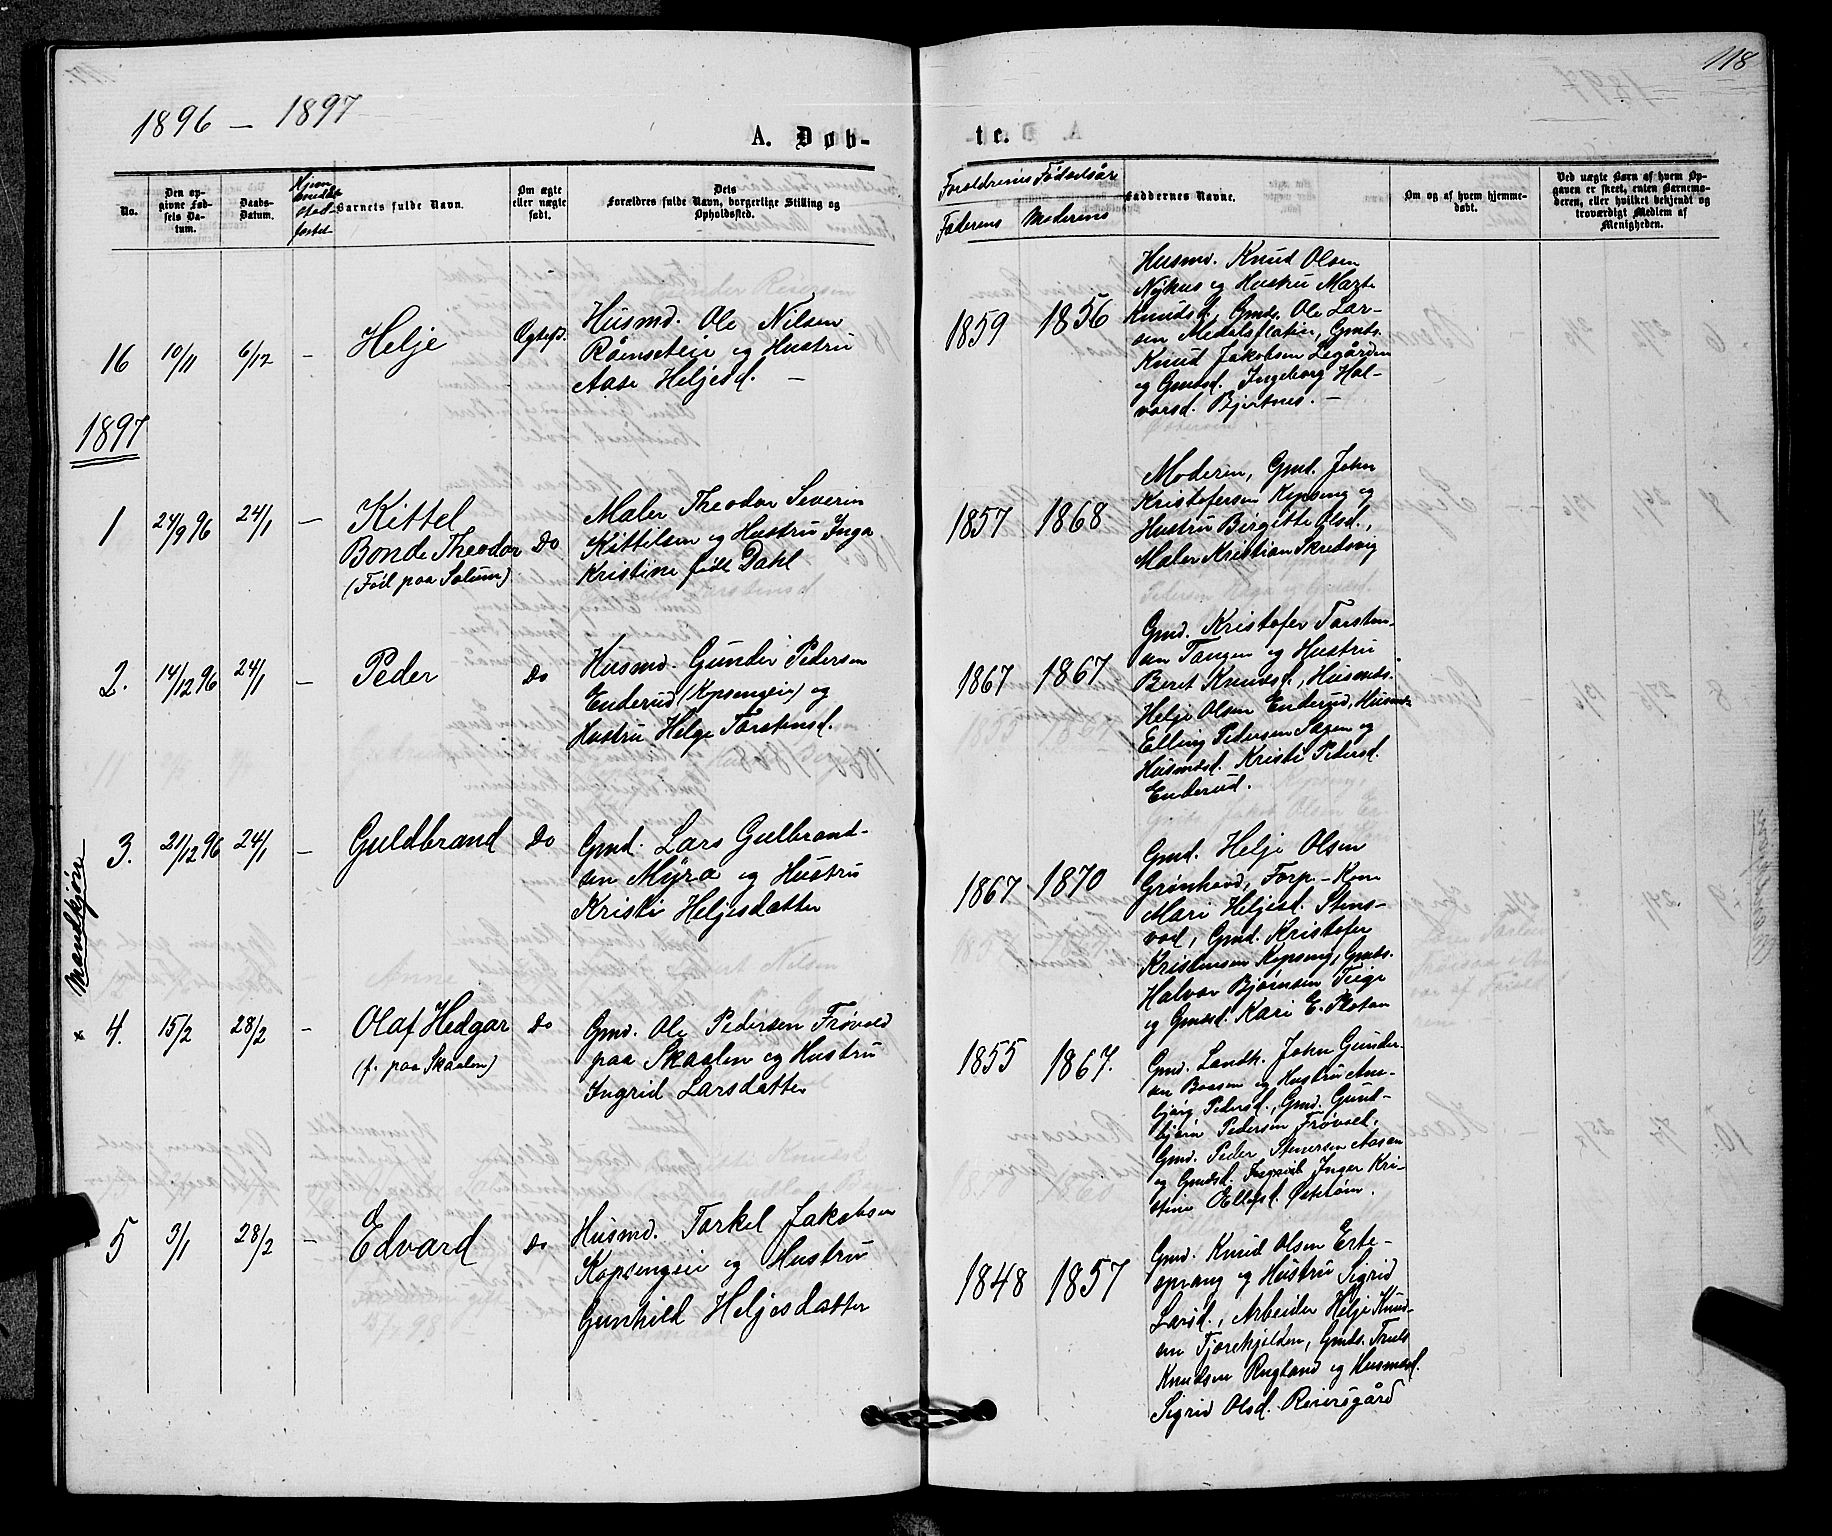 118
1896 – 1897
A. Døb-
te.
No.
Den op-
givne Fød-
sels Da-
tum.
Daabs-
Datum.
Barnets fulde Navn.
Om ægte
eller uægte
født.
Dets
Forældres fulde Navn, borgerlige Stilling og
Opholdssted.
Forældrenes Fødselsår
Faderens Moderens
Faddernes Navne.
Om og af hvem hjemme-
døbt.
Ved uægte Børn af hvem Op-
gaven er skeet, enten Barnemo-
deren, eller hvilket bekjendt og
troværdigt Medlem af
Menigheden.
Mandkjøn
16
10/11
6/12
–
Helje
Ægtef.
Husmd. Ole Nilsen
Råenseteie og Hustru
Aase Heljesd. –
1859
1856
Husmd. Knud Olsen
Nykus og Hustru Marte
Knudsd., Gmds. Ole Lar-
sen Medalsflatin, Gmds.
Knud Jakobsen Legården
og Gmdsd. Ingeborg Hal-
vorsd. Bjertnes. –
1897
1
24/9 96
24/1
–
Kittel
Bonde Theodor
(Föd paa Solum)
Do
Maler Theodor Severin
Kittelsen og Hustru Inga
Kristine født Dahl
1857
1868
Moderen, Gmd. John
Kristofersen Kopseng og
Hustru Birgitte Olsd.,
Maler Kristian Skredsvig
2.
14/12 96
24/1
–
Peder
Do
Husmd. Gunder Pedersen
Enderud (Kopsengeie) og
Hustru Helge Torstensd.
1867
1867
Gmd. Kristofer Torsten-
sen Tangen og Hustru
Beret Knudsd., Husmds.
Helje Olsen Enderud, Husmds.
Elling Pedersen Sagen og
Husmdsd. Kristi Pedersd.
Enderud.
3.
21/12 96
24/1
–
Guldbrand
Do
Gmd. Lars Gulbrand-
sen Myra og Hustru
Kristi Heljesdatter
1867
1870
Gmd. Helje Olsen
Grønhovd, Forp.-Kone
Mari Heljesd. Stens-
vad, Gmd. Kristofer
Kristensen Kopseng, Gmds.
Halvor Bjørnsen Teige
og Gmdsd. Kari E. Plotan
4.
15/2
28/2
–
Olaf Hedgar
(f. paa Skaalen)
Do
Gmd. Ole Pedersen Frøvold
paa Skaalen og Hustru
Ingrid Larsdatter
1855
1867.
Gmd. Landh. John Gunder-
sen Baasen og Hustru Am-
bjørg Pedersd., Gmd. Gund-
bjørn Pedersen Frøvold,
Gmd. Peder Stenersen Aasen
og Gmdsd. Inger Kri-
stine Ellefsd.
5
3/1
28/2
–
Edvard
Do
Husmd. Torkel Jakobsen
Kopsengeie og Hustru
Gunhild Heljesdatter
1848
1857
Gmd. Knud Olsen Erte-
sprang og Hustru Sigrid
Larsd., Arbeider Helje Knud-
sen Tjorehjelden, Gmds. Truls
Knudsen Rugland og Husmdsd.
Sigrid Olsd. Reiersgård